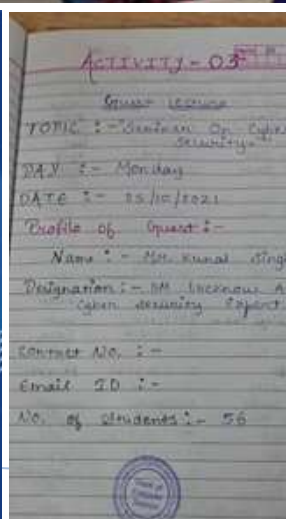 ACTIVITY - 03
Guest Lecture
TOPIC :- "Seminar On Cyber
Security"
DAY :- Monday
DATE :- 25/10/2021
Profile of Guest :-
Name :- Mr. Kunal Singh
Designation :- Lucknow
Cyber Security Expert
Contact No. :-
Email ID :-
No. of students :- 56